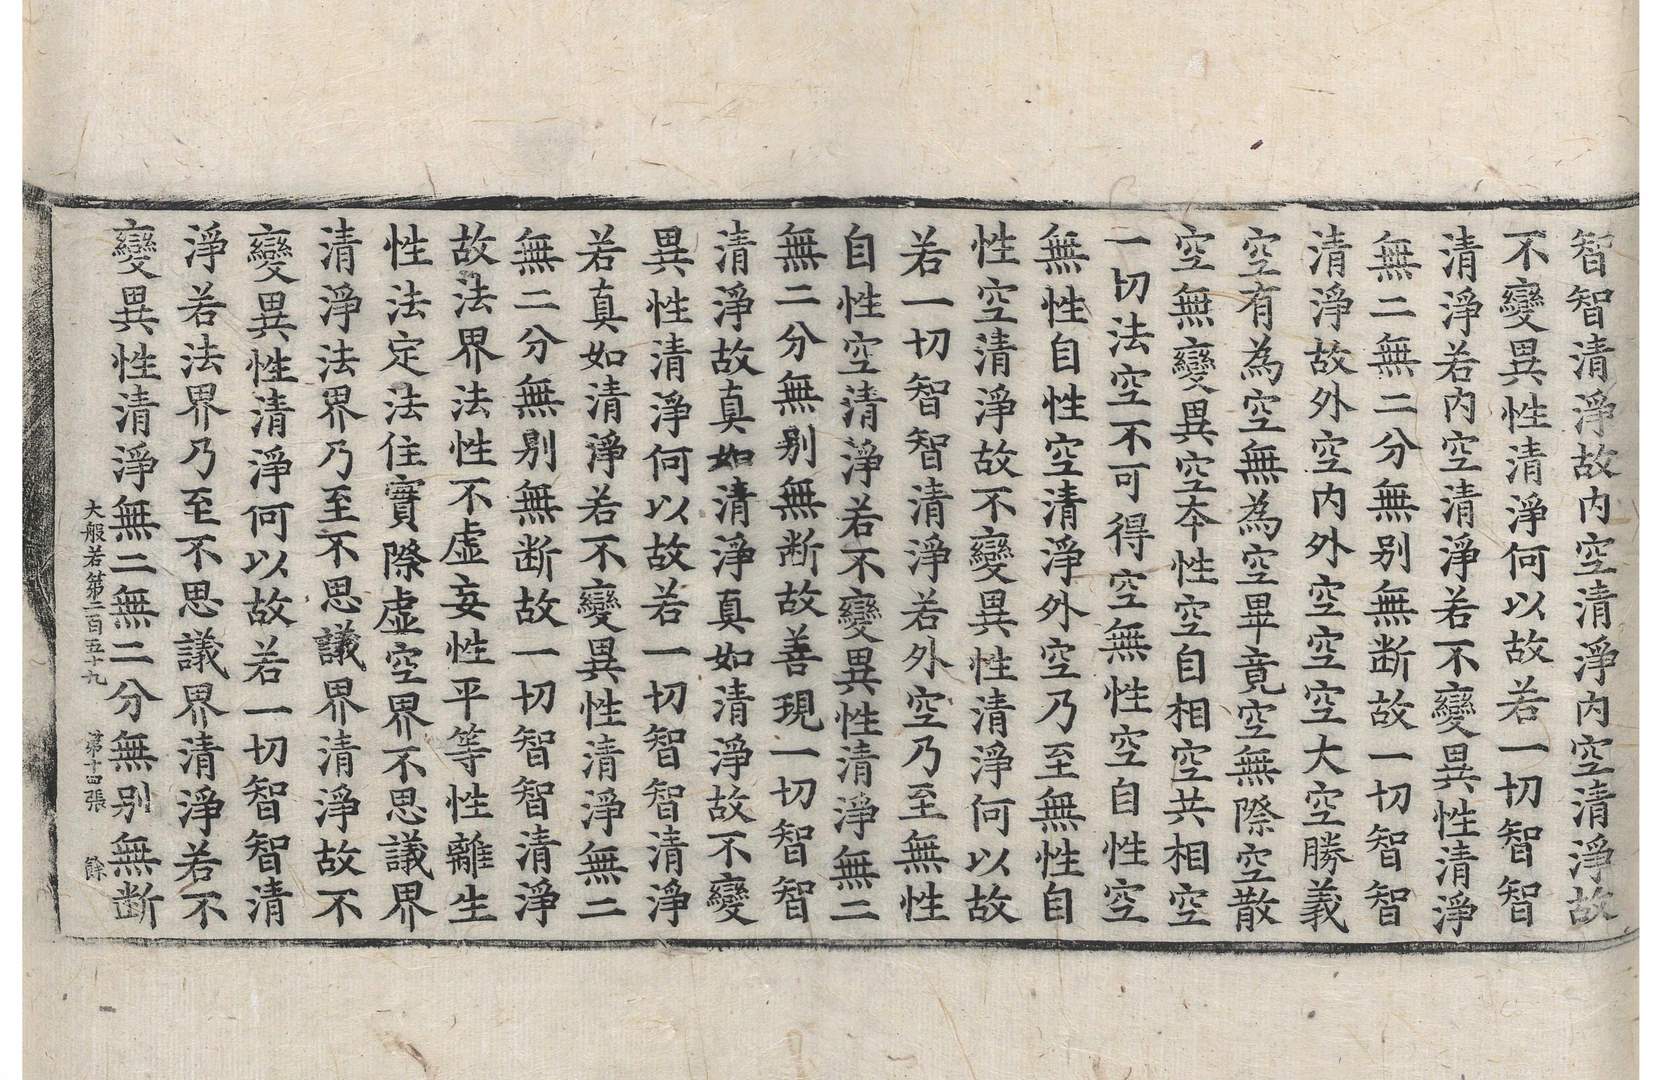 智智清淨故內空清淨內空清淨故
不變異性清淨何以故若一切智智
清淨若內空清淨若不變異性清淨
無二無二分無別無断故一切智智
清淨故外空內外空空空大空勝義
空有為空無為空畢竟空無際空散
空無變異空夲性空自相空共相空
一切法空不可得空無性空自性空
無性自性空清淨外空乃至無性自
性空清淨故不變異性清淨何以故
若一切智智清淨若外空乃至無性
自性空清淨若不變異性清淨無二
無二分無別無断故善現一切智智
清淨故真如清淨真如清淨故不變
異性清淨何以故若一切智智清淨
若真如清淨若不變異性清淨無二
無二分無別無断故一切智智清淨
故法界法性不虛妄性平等性離生
性法定法住實際虛空界不思議界
清淨法界乃至不思議界清淨故不
變異性清淨何以故若一切智智清
淨若法界乃至不思議界清淨若不
變異性清淨無二無二分無別無断
大般若第二百五十九 第十四張 餘